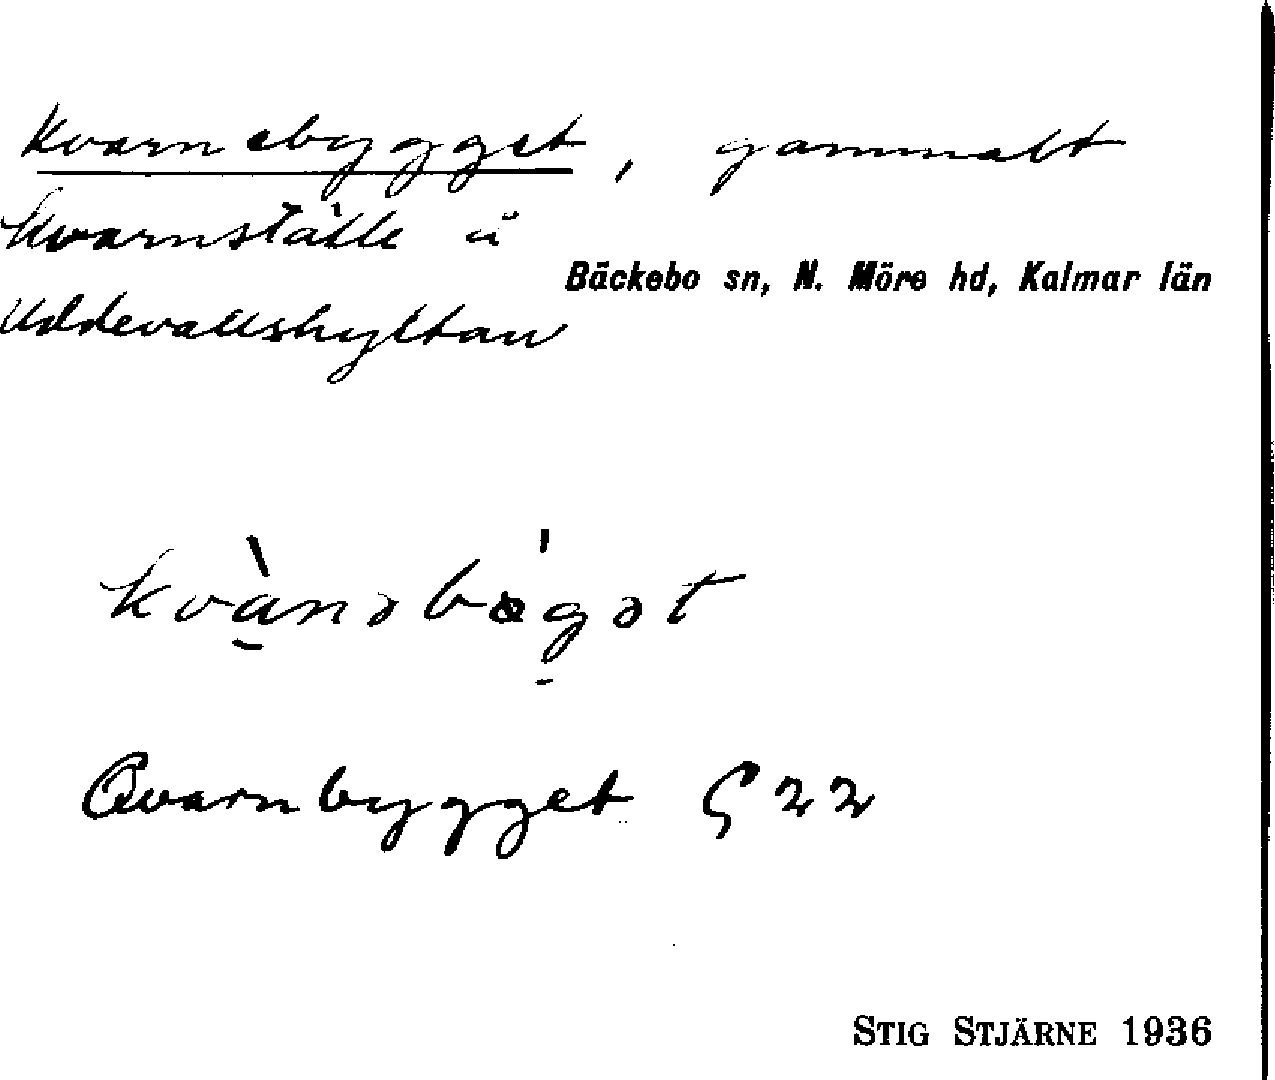 Kvarnebygget, gammalt
kvarnställe å
Bäckebo sn, N. Möre hd, Kalmar län
Uddevallshyltan
kvànəbøgət
Qvarnbygget ς 22
STIG STJÄRNE 1936